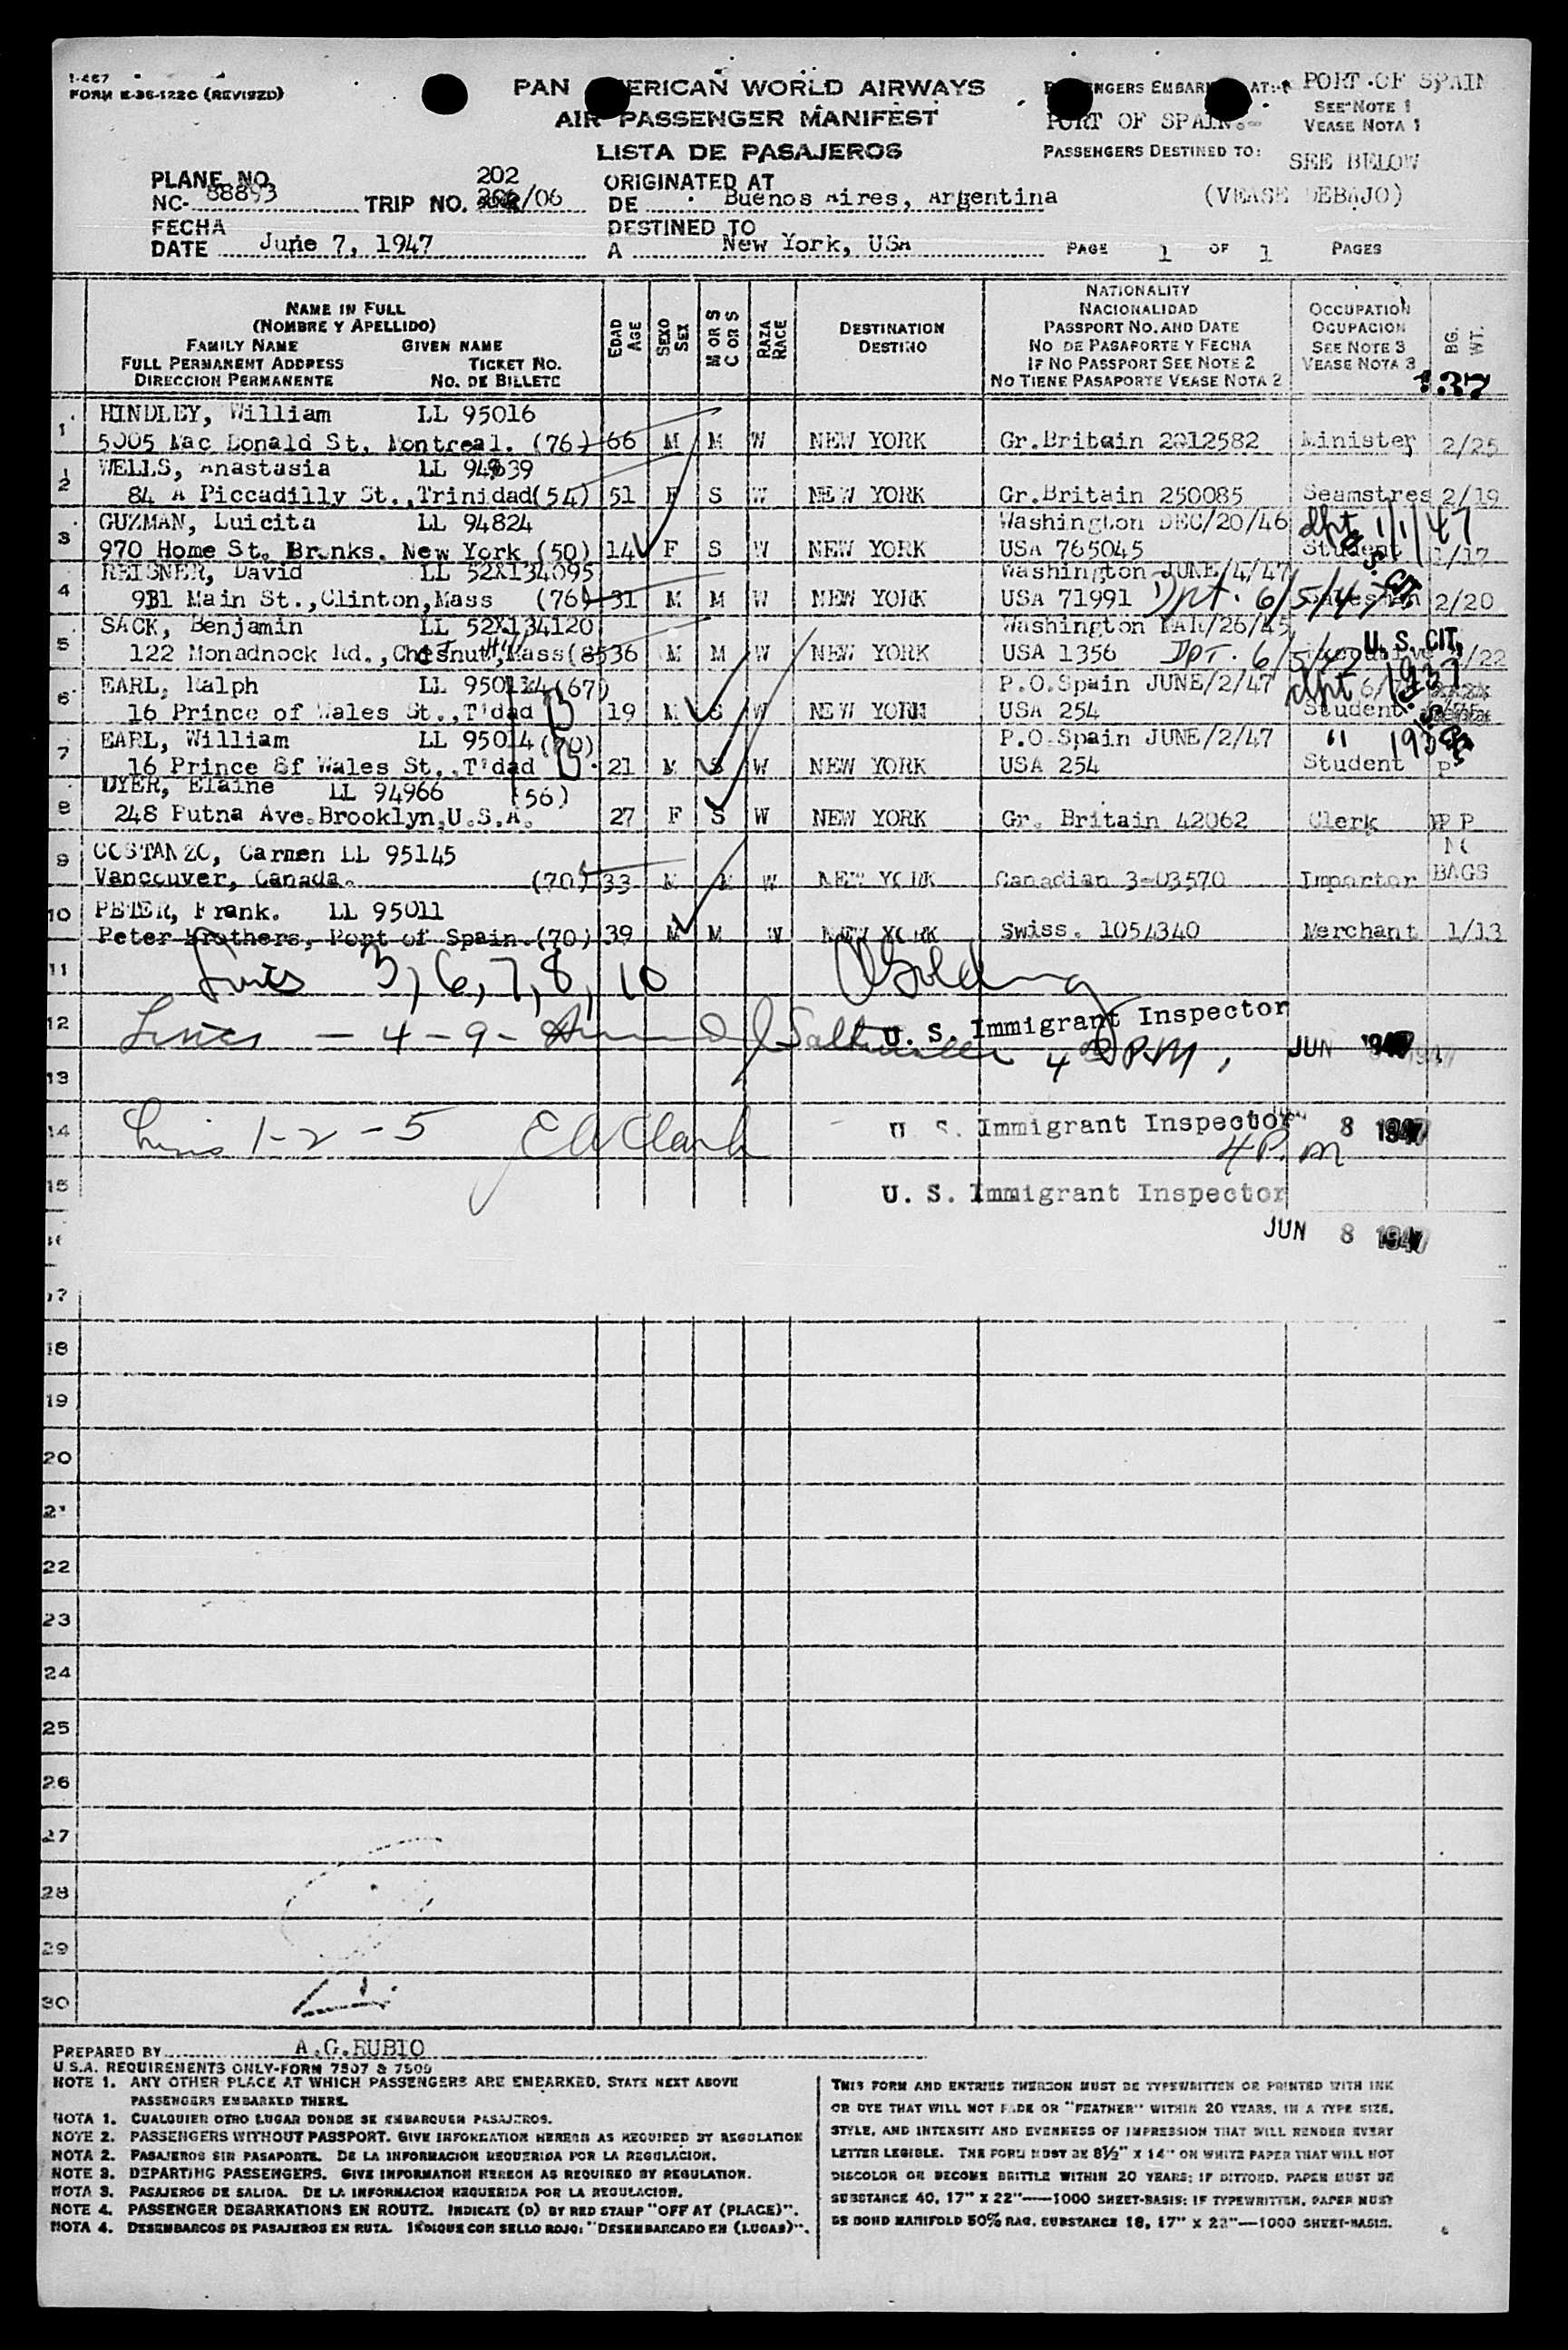 I-467
FORM E-36-122C (REVISED)
PAN AMERICAN WORLD AIRWAYS
AIR PASSENGER MANIFEST
LISTA DE PASAJEROS
PASSENGERS EMBARKED AT:
PORT OF SPAIN
SEE NOTE 1
VEASE NOTA 1
PORT OF SPAIN.-
PASSENGERS DESTINED TO:
SEE BELOW
(VEASE DEBAJO)
PLANE NO.
NC- 88893
TRIP NO. 202/06
ORIGINATED AT
DE Buenos Aires, Argentina
FECHA
DATE June 7, 1947
DESTINED TO
A New York, USA
PAGE 1 OF 1 PAGES
NAME IN FULL
(NOMBRE Y APELLIDO)
FAMILY NAME GIVEN NAME
FULL PERMANENT ADDRESS TICKET NO.
DIRECCION PERMANENTE NO. DE BILLETE
EDAD
AGE
SEXO
SEX
M OR S
C OR S
RAZA
RACE
DESTINATION
DESTINO
NATIONALITY
NACIONALIDAD
PASSPORT NO. AND DATE
NO DE PASAPORTE Y FECHA
IF NO PASSPORT SEE NOTE 2
NO TIENE PASAPORTE VEASE NOTA 2
OCCUPATION
OCUPACION
SEE NOTE 3
VEASE NOTA 3
BG.
WT.
137
1 HINDLEY, William LL 95016
5005 Mac Donald St. Montreal. (76) 66 M M W NEW YORK Gr.Britain 2012582 Minister 2/25
2 WELLS, Anastasia LL 94839
84 A Piccadilly St.,Trinidad(54) 51 F S W NEW YORK Gr.Britain 250085 Seamstres 2/19
3 GUZMAN, Luicita LL 94824 Washington DEC/20/46 dpt 1/1/47
970 Home St. Br.nks. New York (50) 14 F S W NEW YORK USA 765045 Student 1/17
U.S. CIT.
4 REISNER, David LL 52X134095 Washington JUNE/4/47
9B1 Main St.,Clinton,Mass (76) 31 M M W NEW YORK USA 71991 Dpt. 6/5/47 Salesman 2/20
5 SACK, Benjamin LL 52X134120 Washington MAR/26/45 U. S. CIT.
122 Monadnock Rd.,Chesnut,Mass(85 36 M M W NEW YORK USA 1356 Dpt. 6/5/47 /22
6 EARL, Ralph (67) P.O.Spain JUNE/2/47 dpt 1937
16 Prince of Wales St.,T'dad 19 M S W NEW YORK USA 254 Student
7 EARL, William LL 95014 (70) P.O.Spain JUNE/2/47 "
16 Prince of Wales St.,T'dad 21 M S W NEW YORK USA 254 Student
8 DYER, Elaine LL 94966 (56)
248 Putna Ave.Brooklyn,U.S.A. 27 F S W NEW YORK Gr. Britain 42062 Clerk PP
9 COSTANZO, Carmen LL 95145 NO
Vancouver, Canada. (70) 33 M M W NEW YORK Canadian 3-03570 Importer BAGS
10 PETER, Frank. LL 95011
Peter Brothers, Port of Spain.(70) 39 M M W NEW YORK Swiss. 1054340 Merchant 1/13
11 Lines 3, 6, 7, 8, 10 Golding
12 Lines - 4 - 9 - U. S. Immigrant Inspector
4 P.M. JUN 1947
13
14 Lines 1 - 2 - 5 E A Clark U. S. Immigrant Inspector 8 1947
4 P.m
15 U. S. Immigrant Inspector
JUN 8 1947
17
18
19
20
21
22
23
24
25
26
27
28
29
30
PREPARED BY A.G.RUBIO
U.S.A. REQUIREMENTS ONLY-FORM 7507 & 7509
NOTE 1. ANY OTHER PLACE AT WHICH PASSENGERS ARE EMBARKED, STATE NEXT ABOVE
PASSENGERS EMBARKED THERE.
NOTA 1. CUALQUIER OTRO LUGAR DONDE SE EMBARQUEN PASAJEROS.
NOTE 2. PASSENGERS WITHOUT PASSPORT. GIVE INFORMATION HEREON AS REQUIRED BY REGULATION
NOTA 2. PASAJEROS SIN PASAPORTE. DE LA INFORMACION REQUERIDA POR LA REGULACION.
NOTE 3. DEPARTING PASSENGERS. GIVE INFORMATION HEREON AS REQUIRED BY REGULATION.
NOTA 3. PASAJEROS DE SALIDA. DE LA INFORMACION REQUERIDA POR LA REGULACION.
NOTE 4. PASSENGER DEBARKATIONS EN ROUTE. INDICATE (D) BY RED STAMP "OFF AT (PLACE)".
NOTA 4. DESEMBARCOS DE PASAJEROS EN RUTA. INDIQUE CON SELLO ROJO: "DESEMBARCADO EN (LUGAR)".
THIS FORM AND ENTRIES THEREON MUST BE TYPEWRITTEN OR PRINTED WITH INK
OR DYE THAT WILL NOT FADE OR "FEATHER" WITHIN 20 YEARS, IN A TYPE SIZE,
STYLE, AND INTENSITY AND EVENNESS OF IMPRESSION THAT WILL RENDER EVERY
LETTER LEGIBLE. THE FORM MUST BE 8½" X 14" ON WHITE PAPER THAT WILL NOT
DISCOLOR OR BECOME BRITTLE WITHIN 20 YEARS; IF DITTOED, PAPER MUST BE
SUBSTANCE 40, 17" X 22"—1000 SHEET-BASIS; IF TYPEWRITTEN, PAPER MUST
BE BOND MANIFOLD 50% RAG, SUBSTANCE 18, 17" X 22"—1000 SHEET-BASIS.